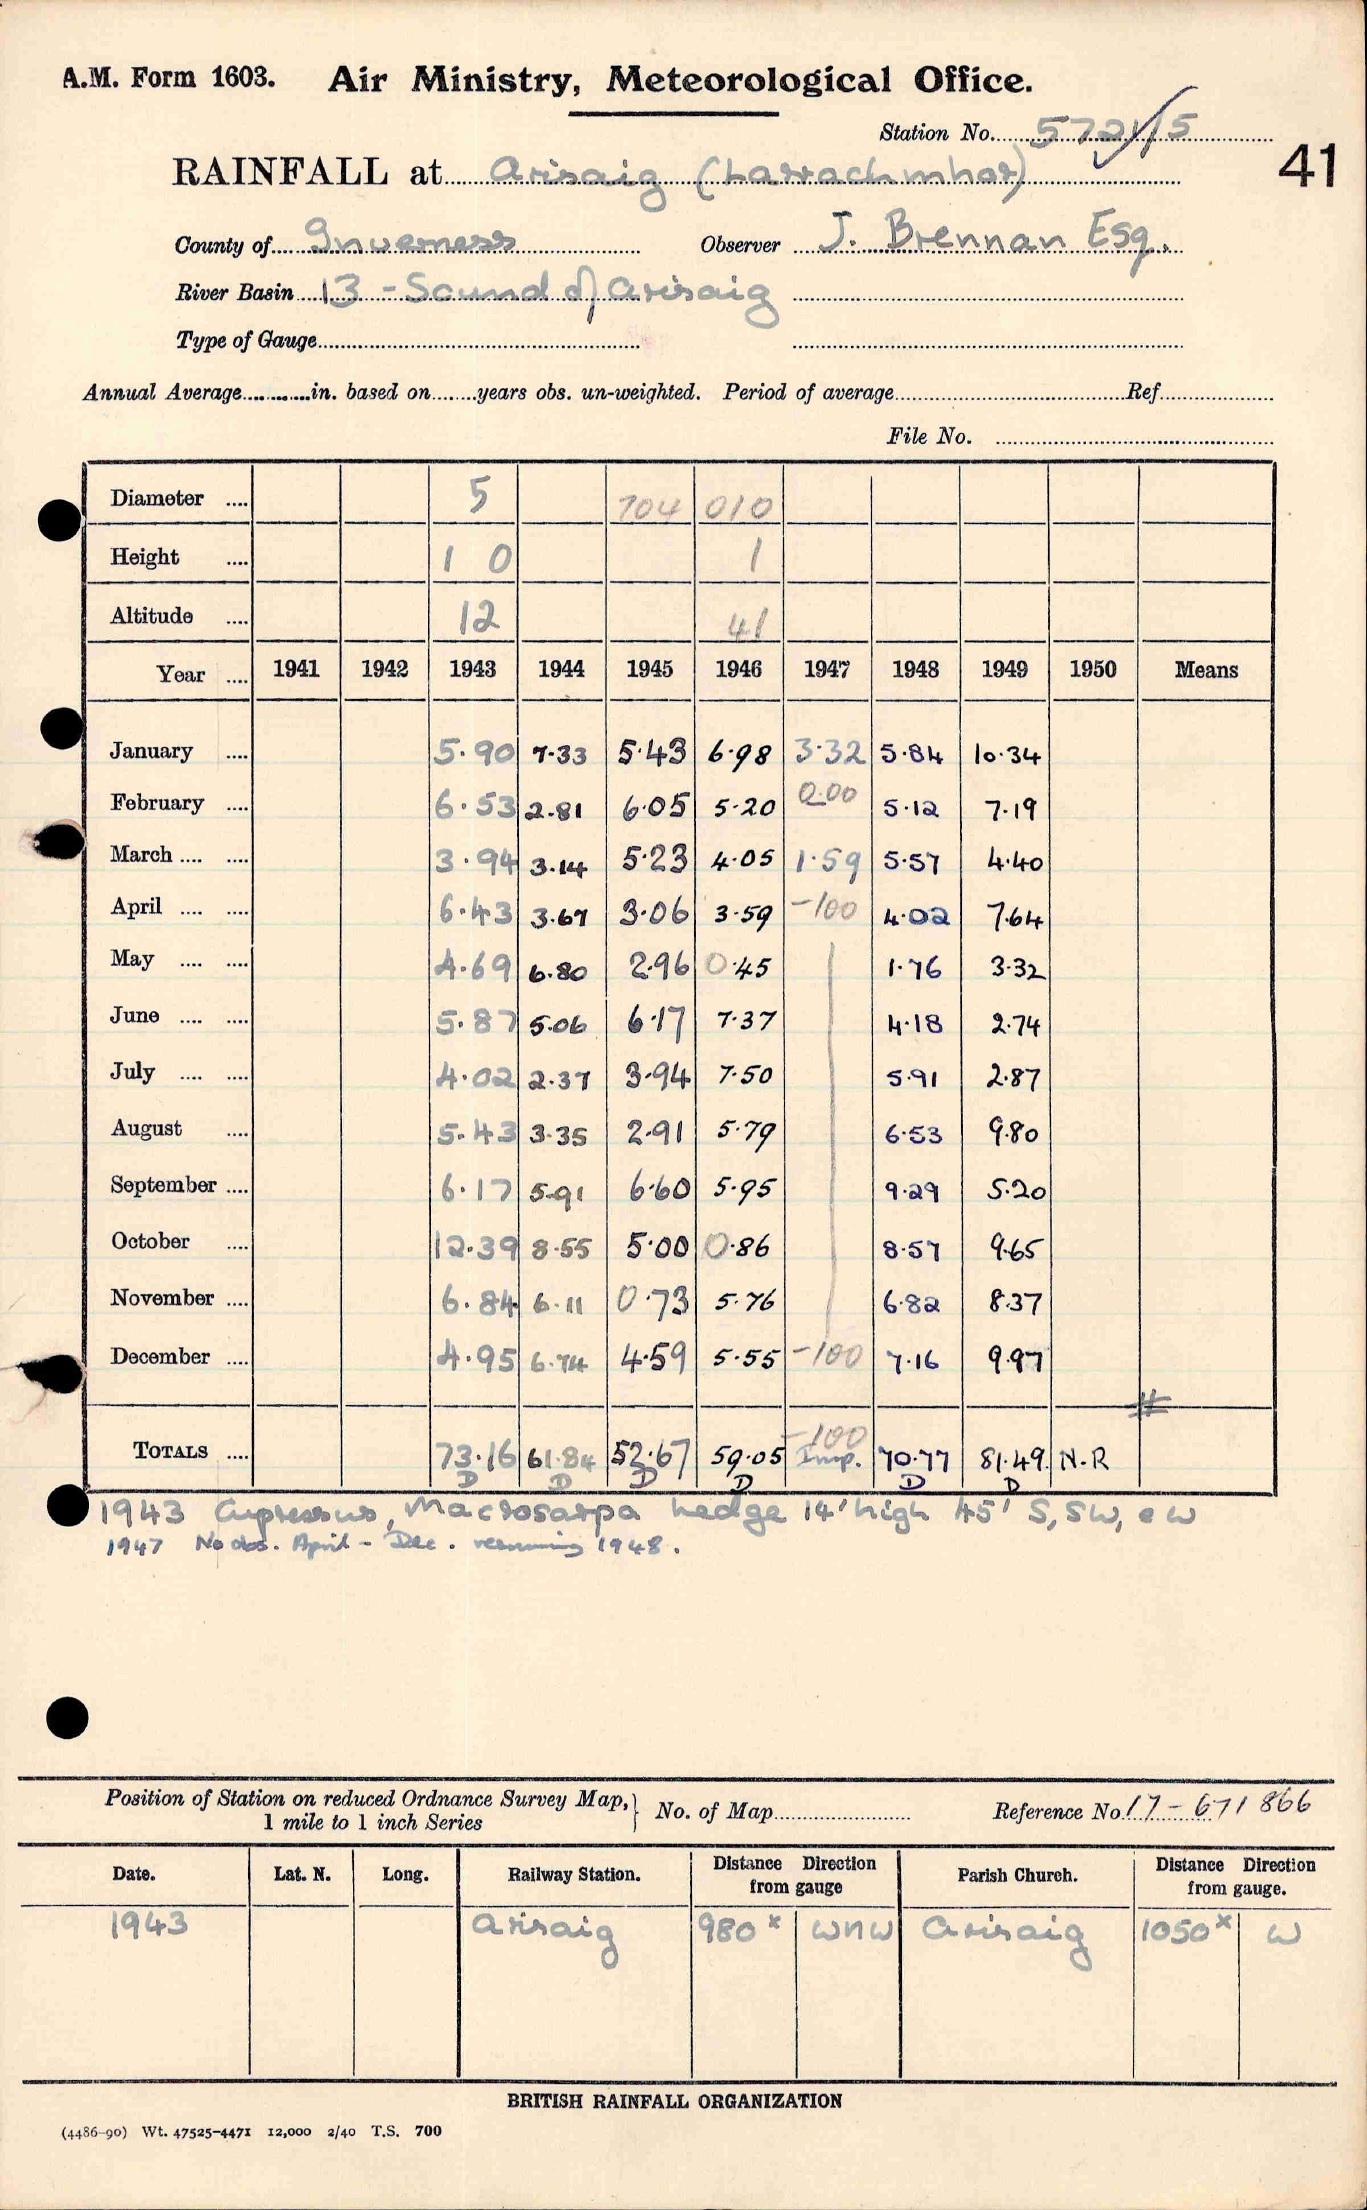 A.M. Form 1603. Air Ministry, Meteorological Office.
Station No. 5721/5
41
RAINFALL at Arisaig (Larrachmhor)
County of Inverness Observer J. Brennan Esq.
River Basin 13 - Sound of Arisaig
Type of Gauge
Annual Average in. based on years obs. un-weighted. Period of average Ref.
File No.
Diameter 5 704 010
Height 1 0 1
Altitude 12 41
Year 1941 1942 1943 1944 1945 1946 1947 1948 1949 1950 Means
January 5.90 7.33 5.43 6.98 3.32 5.84 10.34
February 6.53 2.81 6.05 5.20 0.00 5.12 7.19
March 3.94 3.14 5.23 4.05 1.59 5.57 4.40
April 6.43 3.67 3.06 3.59 -100 4.02 7.64
May 4.69 6.80 2.96 0.45 1.76 3.32
June 5.87 5.06 6.17 7.37 4.18 2.74
July 4.02 2.37 3.94 7.50 5.91 2.87
August 5.43 3.35 2.91 5.79 6.53 9.80
September 6.17 5.91 6.60 5.95 9.29 5.20
October 12.39 8.55 5.00 0.86 8.57 9.65
November 6.84 6.11 0.73 5.76 6.82 8.37
December 4.95 6.74 4.59 5.55 -100 7.16 9.97
#
-100
TOTALS 73.16 61.84 52.67 59.05 Imp. 70.77 81.49 N.R
D D D D D D
1943 Cupressus, Macrosarpa hedge 14' high 45' S, SW, & W
1947 No obs. April - Dec. resuming 1948.
Position of Station on reduced Ordnance Survey Map, 1 mile to 1 inch Series No. of Map Reference No. 17 - 671866
Date. Lat. N. Long. Railway Station. Distance Direction from gauge Parish Church. Distance Direction from gauge.
1943 Arisaig 980x WNW Arisaig 1050x W
BRITISH RAINFALL ORGANIZATION
(4486-90) Wt. 47525-4471 12,000 2/40 T.S. 700